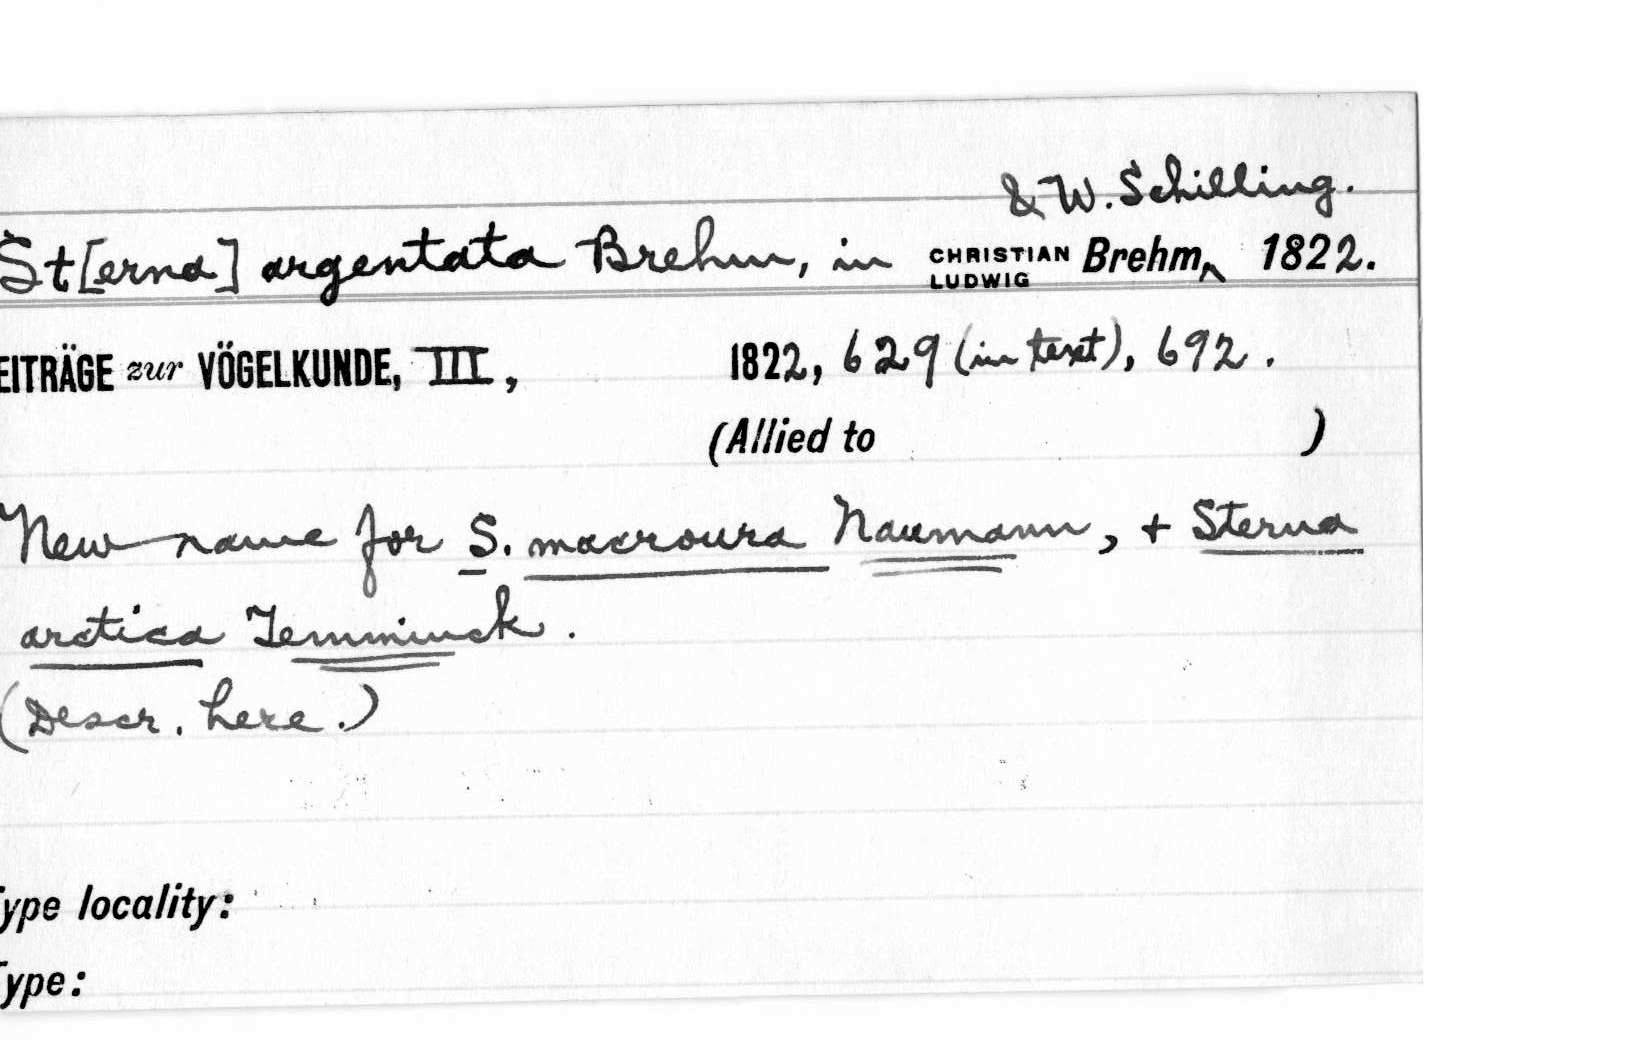 & W. Schilling.
St[erna] argentata Brehm, in CHRISTIAN LUDWIG Brehm, 1822.
EITRÄGE zur VÖGELKUNDE, III, 1822, 629 (in text), 692.
(Allied to )
New name for S. macroura Naumann, + Sterna
arctica Temminck.
(Descr. here.)
Type locality:
Type: